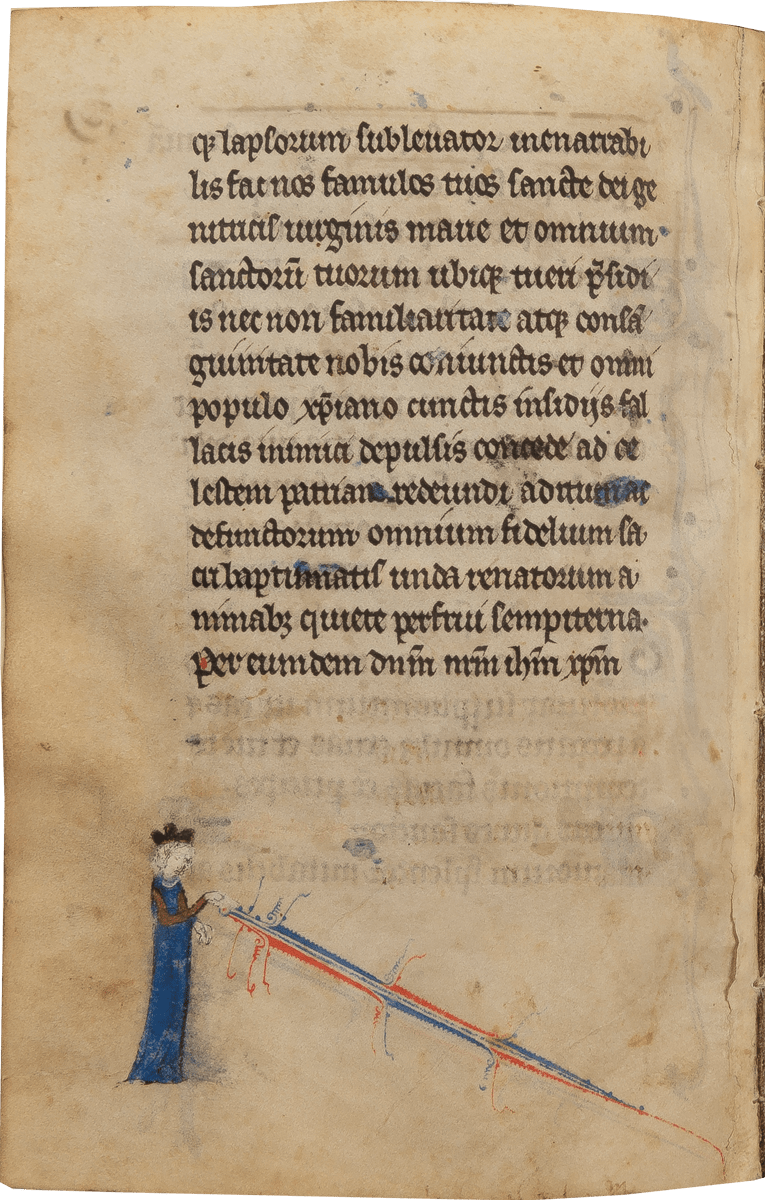 qꝫ lapsorum subleuator inenarrabi
lis fac nos famulos tuos sancte dei ge
nitricis uirginis marie et omnium
sanctorū tuorum ubiqꝫ tueri p̄sidi
is nec non familiaritate atqꝫ consā
guinitate nobis coniunctis et omni
populo xp̄iano cunctis insidijs fal
lacis inimici depulsis concede ad ce
lestem patriam redeundi aditum ac
defunctorum omnium fidelium sa
cri baptismatis unda renatorum a
nimabꝫ quiete perfrui sempiterna.
Per eumdem dn̄m nr̄m ihm̄ xpm̄